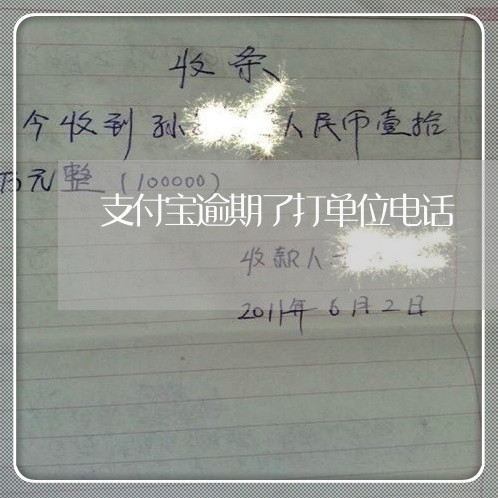 收条
今收到孙 人民币壹拾
万元整（100000）
支付宝逾期了打单位电话
收款人
2011年6月2日